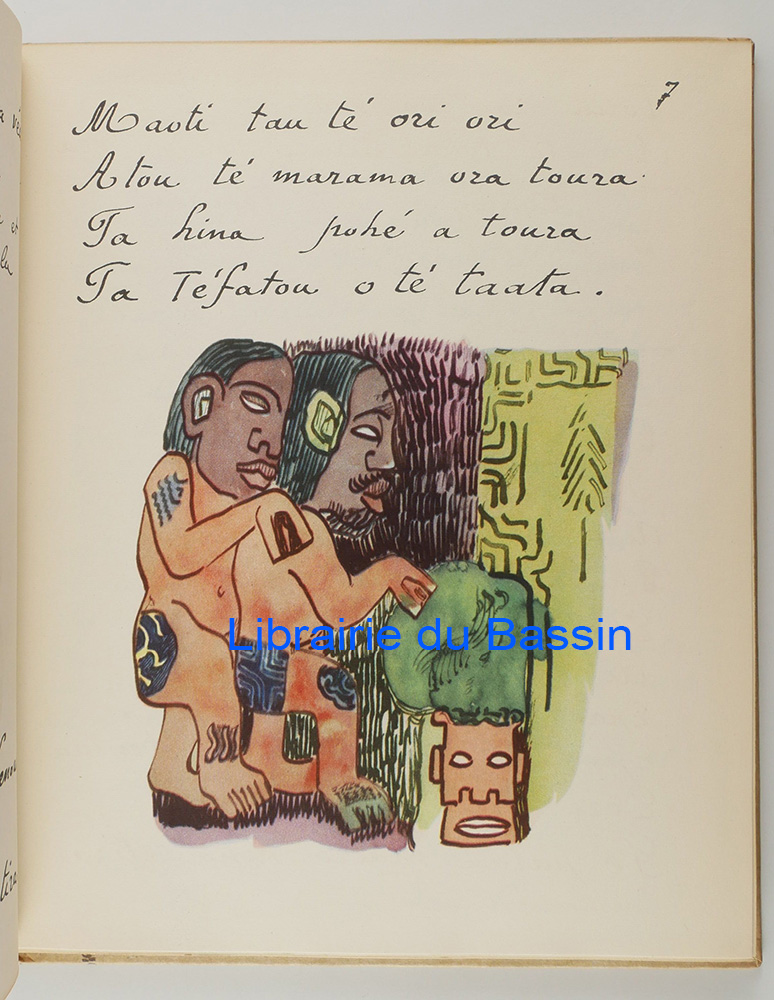 7
Maoti tau té ori ori
Atou té marama ora toura.
Ta hina pohé a toura
Ta Téfatou o té taata.
Librairie du Bassin